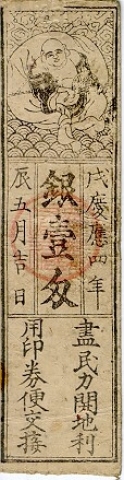 戊慶應四年
銀壹匁
辰五月吉日
盡民力開地利
用印券便交接